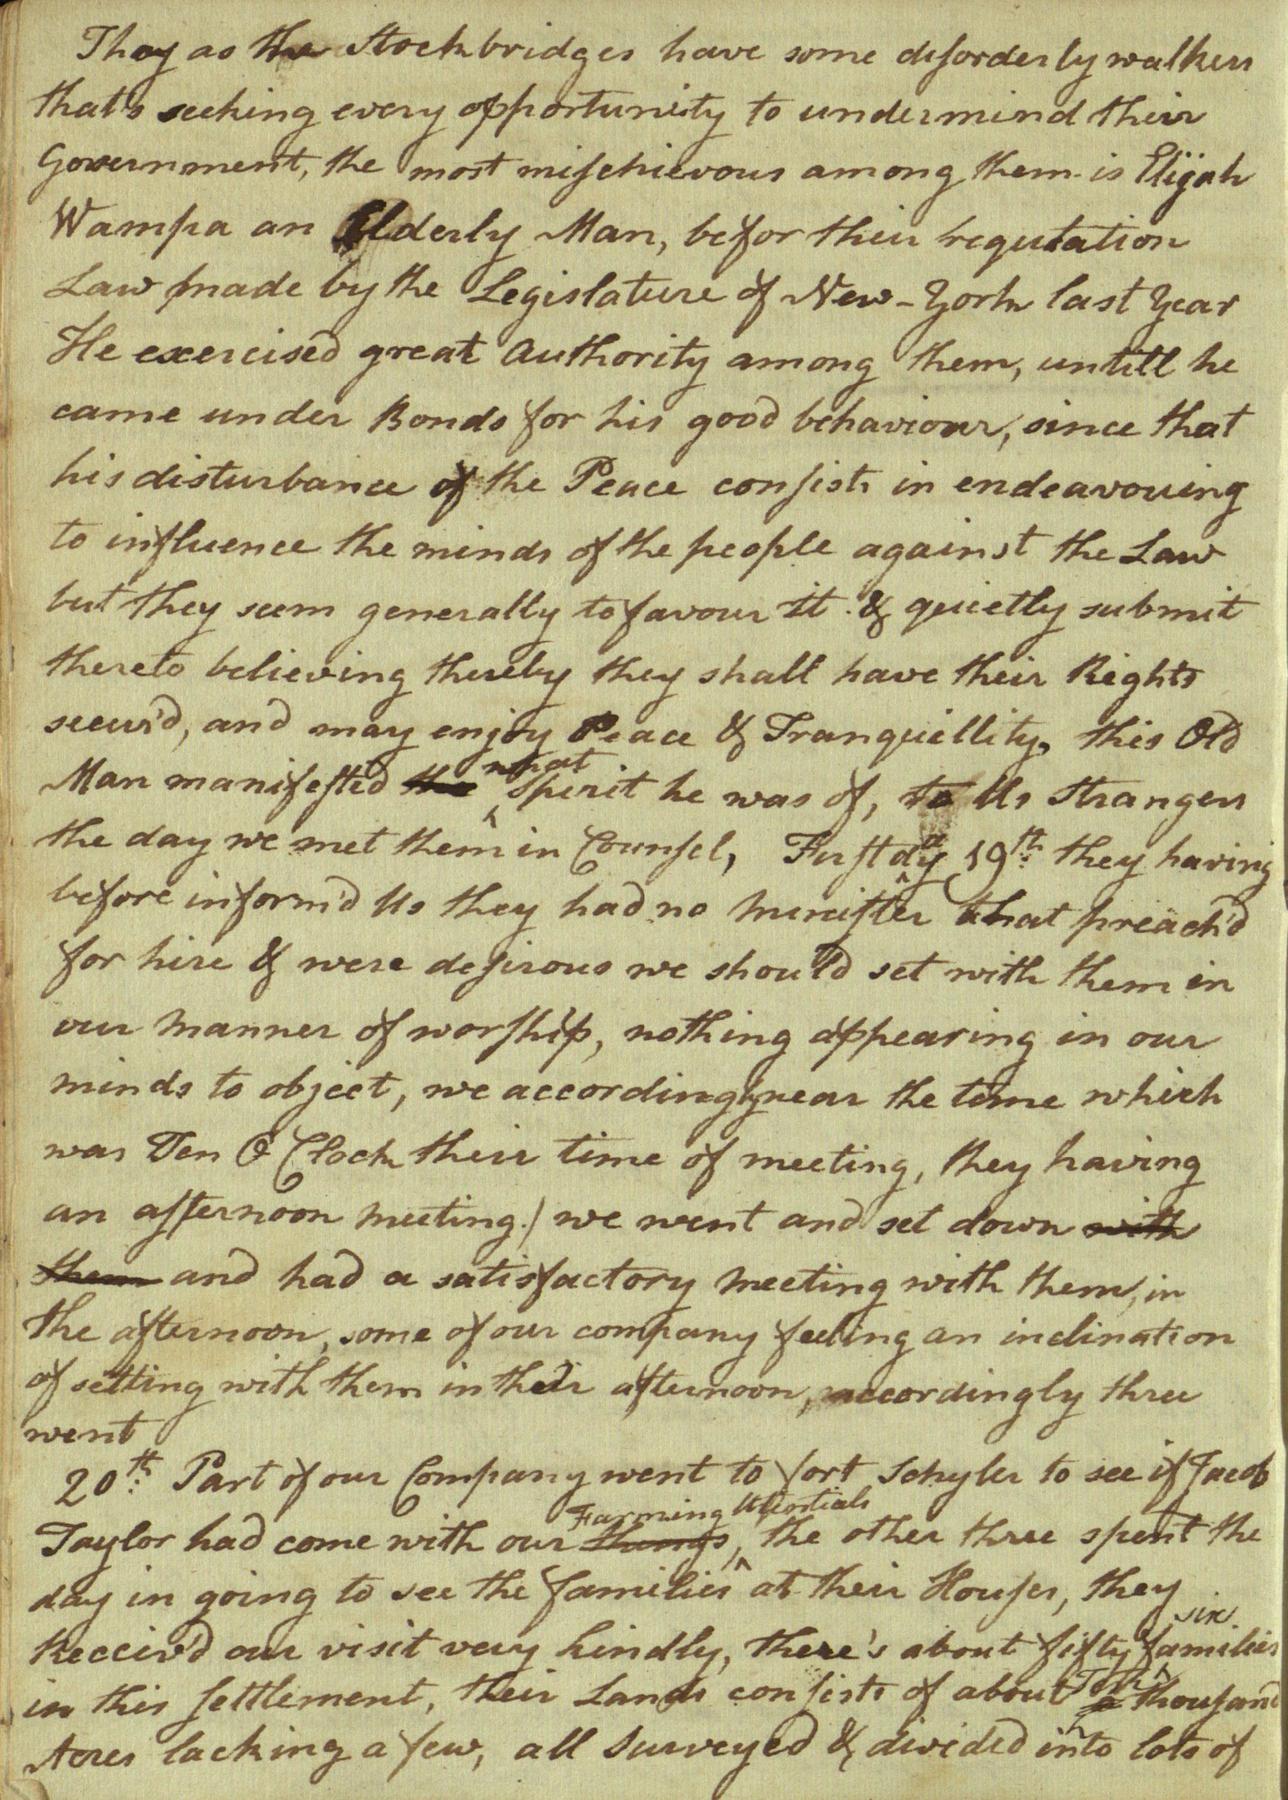 They as the Stockbridges have some disorderly walkers
that's seeking every opportunity to undermind their
Government, the most mischievous among them is Elijah
Wampa an Elderly Man, befor their regulation
Law made by the Legislature of New-York last Year
He exercised great Authority among them, untill he
came under Bonds for his good behaviour, since that
his disturbance of the Peace consists in endeavouing
to influence the minds of the people against the Law
but they seem generally to favour it & quietly submit
thereto believing thereby they shall have their Rights
secur'd, and may enjoy Peace & Tranquillity. this Old
Man manifested the what spirit he was of, to Us Strangers
the day we met them in Counsel, First day 19th they having
before inform'd Us they had no Minister that preach'd
for hire & were desirous we should set with them in
our manner of worship, nothing appearing in our
minds to object, we accordingly near the time which
was Ten O Clock their time of meeting, they having
an afternoon meeting) we went and set down with
them and had a satisfactory meeting with them, in
the afternoon, some of our company feeling an inclination
of setting with them in their afternoon, accordingly three
went
20th Part of our Company went to fort Schyler to see if Jacob
Taylor had come with our things, Farming Utentials the other three spent the
day in going to see the families at their Houses, they
Receiv'd our visit very kindly, there's about fifty six families
in this settlement, their Lands consists of about Ten thousand
Acres lacking a few, all Surveyed & divided into lots of